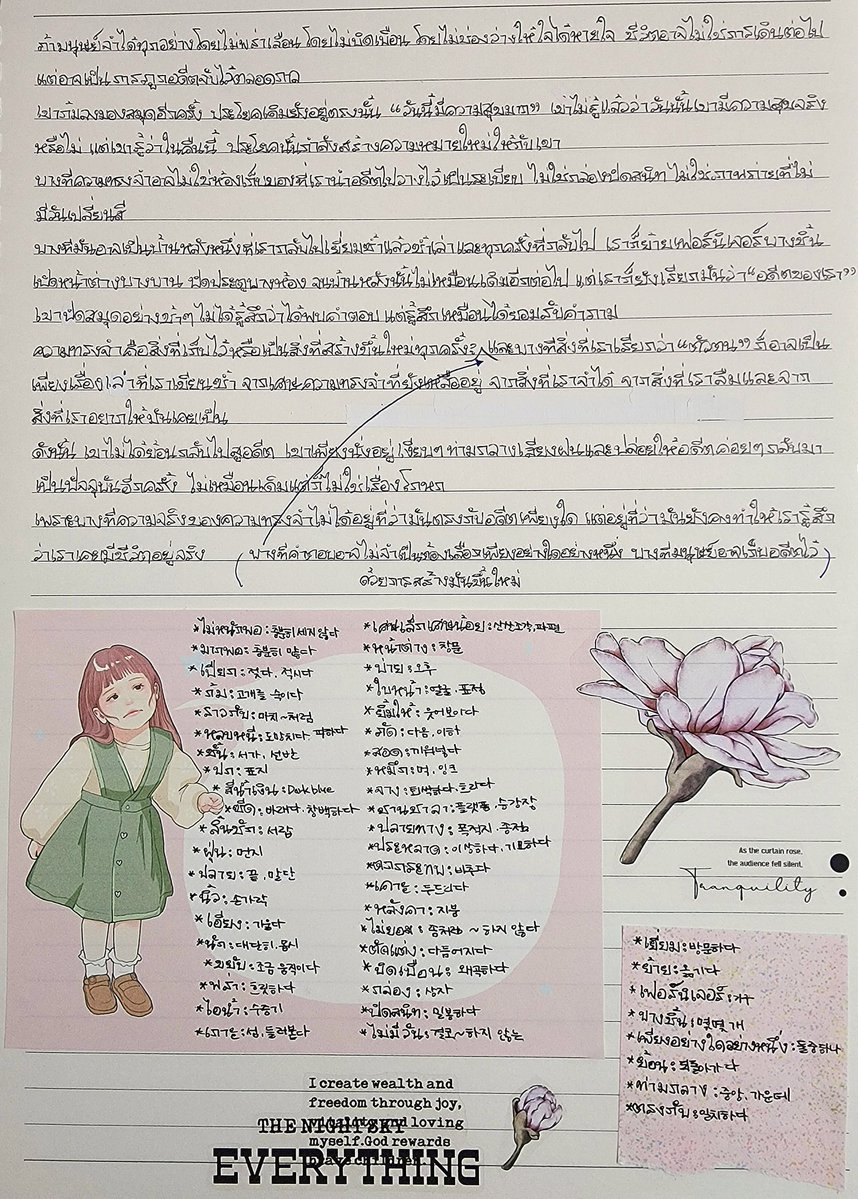 ถ้ามนุษย์จำได้ทุกอย่างโดยไม่พร่าเลือน โดยไม่บิดเบือน โดยไม่มีช่องว่างให้ใจได้หายใจ ชีวิตอาจไม่ใช่การเดินต่อไป
แต่อาจเป็นการถูกอดีตจับไว้ตลอดกาล
เขาก้มลงมองสมุดอีกครั้ง ประโยคเดิมยังอยู่ตรงนั้น “วันนี้มีความสุขมาก” เขาไม่รู้แล้วว่าวันนั้นเขามีความสุขจริง
หรือไม่ แต่เขารู้ว่าในคืนนี้ ประโยคนั้นกำลังสร้างความหมายใหม่ให้กับเขา
บางทีความทรงจำอาจไม่ใช่ห้องเก็บของที่เรานำอดีตไปวางไว้เป็นระเบียบ ไม่ใช่กล่องปิดสนิท ไม่ใช่ภาพถ่ายที่ไม่
มีวันเปลี่ยนสี
บางทีมันอาจเป็นบ้านหลังหนึ่งที่เรากลับไปเยี่ยมซ้ำแล้วซ้ำเล่า และทุกครั้งที่กลับไป เราก็ย้ายเฟอร์นิเจอร์บางชิ้น
เปิดหน้าต่างบางบาน ปิดประตูบางห้อง จนบ้านหลังนั้นไม่เหมือนเดิมอีกต่อไป แต่เราก็ยังเรียกมันว่า“อดีตของเรา”
เขาปิดสมุดอย่างช้าๆ ไม่ได้รู้สึกว่าได้พบคำตอบ แต่รู้สึกเหมือนได้ยอมรับคำถาม
ความทรงจำคือสิ่งที่เก็บไว้หรือเป็นสิ่งที่สร้างขึ้นใหม่ทุกครั้ง และบางทีสิ่งที่เราเรียกว่า “ตัวตน” ก็อาจเป็น
เพียงเรื่องเล่าที่เราเขียนซ้ำ จากเศษความทรงจำที่ยังเหลืออยู่ จากสิ่งที่เราจำได้ จากสิ่งที่เราลืมและจาก
สิ่งที่เราอยากให้มันเคยเป็น
ดังนั้น เขาไม่ได้ย้อนกลับไปสู่อดีต เขาเพียงนั่งอยู่เงียบๆ ท่ามกลางเสียงฝนและปล่อยให้อดีตค่อยๆ กลับมา
เป็นปัจจุบันอีกครั้ง ไม่เหมือนเดิมแต่ก็ไม่ใช่เรื่องโกหก
เพราะบางทีความจริงของความทรงจำไม่ได้อยู่ที่ว่ามันตรงกับอดีตเพียงใด แต่อยู่ที่ว่ามันยังคงทำให้เรารู้สึก
ว่าเราเคยมีชีวิตอยู่จริง (บางทีคำตอบอาจไม่จำเป็นต้องเลือกเพียงอย่างใดอย่างหนึ่ง บางทีมนุษย์อาจเก็บอดีตไว้)
ด้วยการสร้างมันขึ้นใหม่
*ไม่หนักพอ : 충분히 세지 않다
*มากพอ : 충분히 많다
*เปียก : 젖다. 적시다
*ก้ม : 고개를 숙이다
*ราวกับ : 마치~처럼
*หลบหนี : 도망치다. 피하다
*ชั้น : 서가, 선반
*ปก : 표지
*สีน้ำเงิน : Dark blue
*ซีด : 바래다. 창백하다
*ลิ้นชัก : 서랍
*ฝุ่น : 먼지
*ปลาย : 끝, 말단
*นิ้ว : 손가락
*เอียง : 기울다
*นัก : 대단히. 몹시
*ขยับ : 조금 움직이다
*พร่า : 흐릿하다
*ไอน้ำ : 수증기
*เกาะ : 섬, 들러붙다
*เศษเล็กเศษน้อย : 산산조각, 파편
*หน้าต่าง : 창문
*บ่าย : 오후
*ใบหน้า : 얼굴. 표정
*ยิ้มให้ : 웃어보이다
*ถัด : 다음, 이하
*สอด : 끼워넣다
*หมึก : 먹, 잉크
*จาง : 희박하다. 흐리다
*ชานชาลา : 플랫폼, 승강장
*ปลายทาง : 목적지. 종점
*ประหลาด : 이상하다, 기묘하다
*ตกกระทบ : 비추다
*เคาะ : 두드리다
*หลังคา : 지붕
*ไม่ยอม : ~하지 않다
*ตัดแต่ง : 다듬어지다
*บิดเบือน : 왜곡하다
*กล่อง : 상자
*ปิดสนิท : 밀봉하다
*ไม่มีวัน : 결코~하지 않는
As the curtain rose,
the audience fell silent.
Tranquility
*เยี่ยม : 방문하다
*ย้าย : 옮기다
*เฟอร์นิเจอร์ : 가구
*บางชิ้น : 몇몇개
*เพียงอย่างใดอย่างหนึ่ง : 둘중하나
*ย้อน : 되돌아가다
*ท่ามกลาง : 중앙. 가운데
*ตรงกับ : 일치하다
I create wealth and
freedom through joy,
THE NIGHT SKY
and loving
myself.God rewards
EVERYTHING